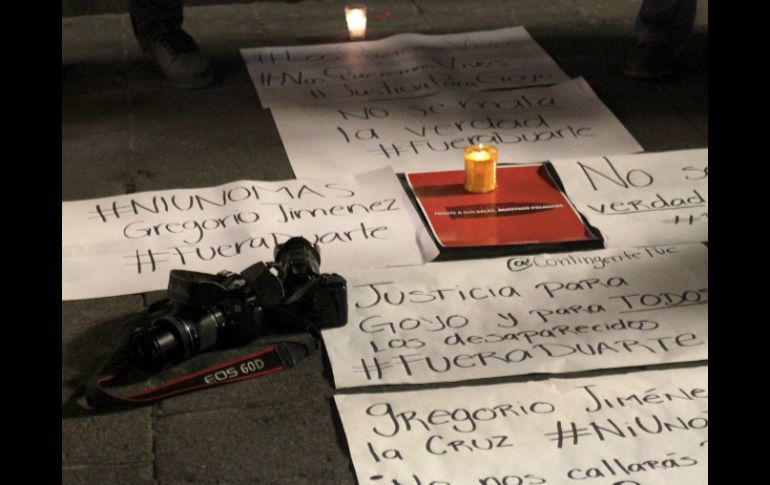 Nos Queremos Vivos
#JusticiaParaGoyo
No se mata
la verdad
#FueraDuarte
#NIUNOMAS
Gregorio Jiménez
#FueraDuarte
No se
verdad
FRENTE A SUS BALAS, NUESTRAS PALABRAS
@ContingenteMx
Justicia para
Goyo y para TODOS
los desaparecidos
#FueraDuarte
EOS 60D
Gregorio Jiménez
la Cruz #NiUno
No nos callarás